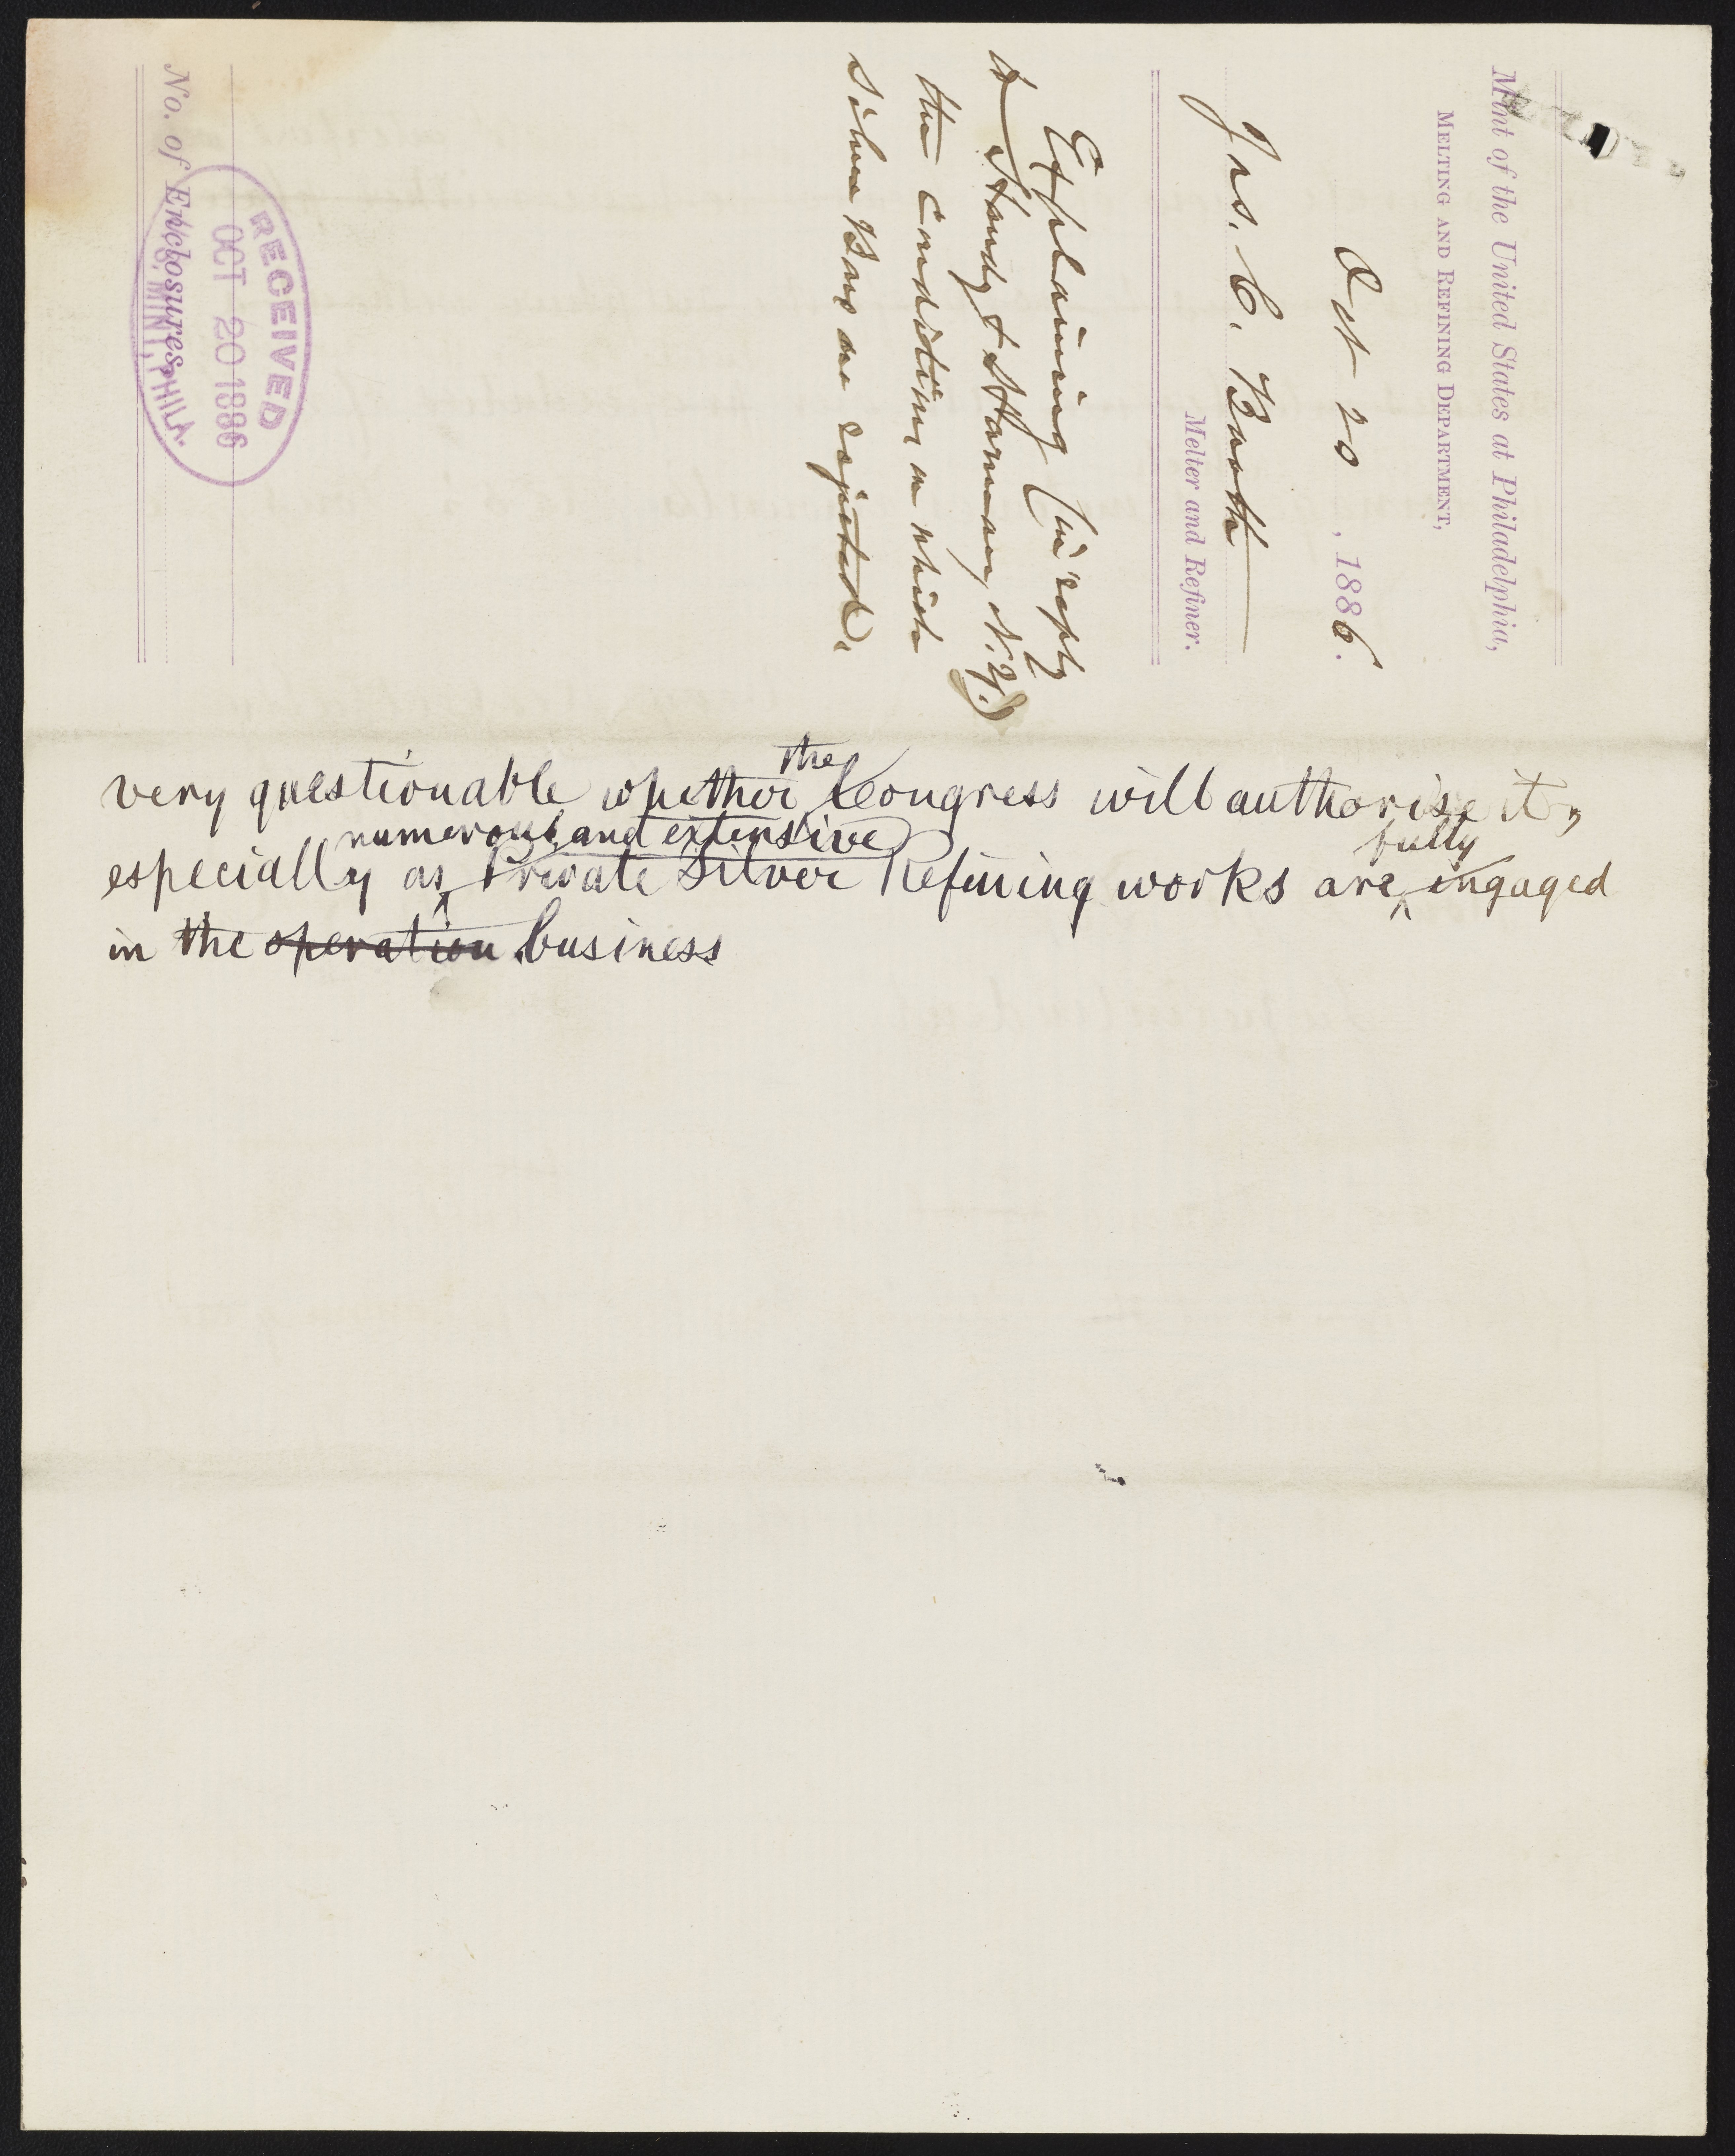 Mint of the United States at Philadelphia,
MELTING AND REFINING DEPARTMENT,
Oct 20, 1886.
Jas. C. Booth
Melter and Refiner.
Explaining (in reply
to Handy & Harman, N.Y.)
the condition in which
Silver Bars are rejected.
No. of Enclosures,
RECEIVED
OCT 20 1886
U.S. MINT, PHILA.
very questionable whether the Congress will authorise it,
especially as numerous and extensive Private Silver Refining works are fully engaged
in the operation business